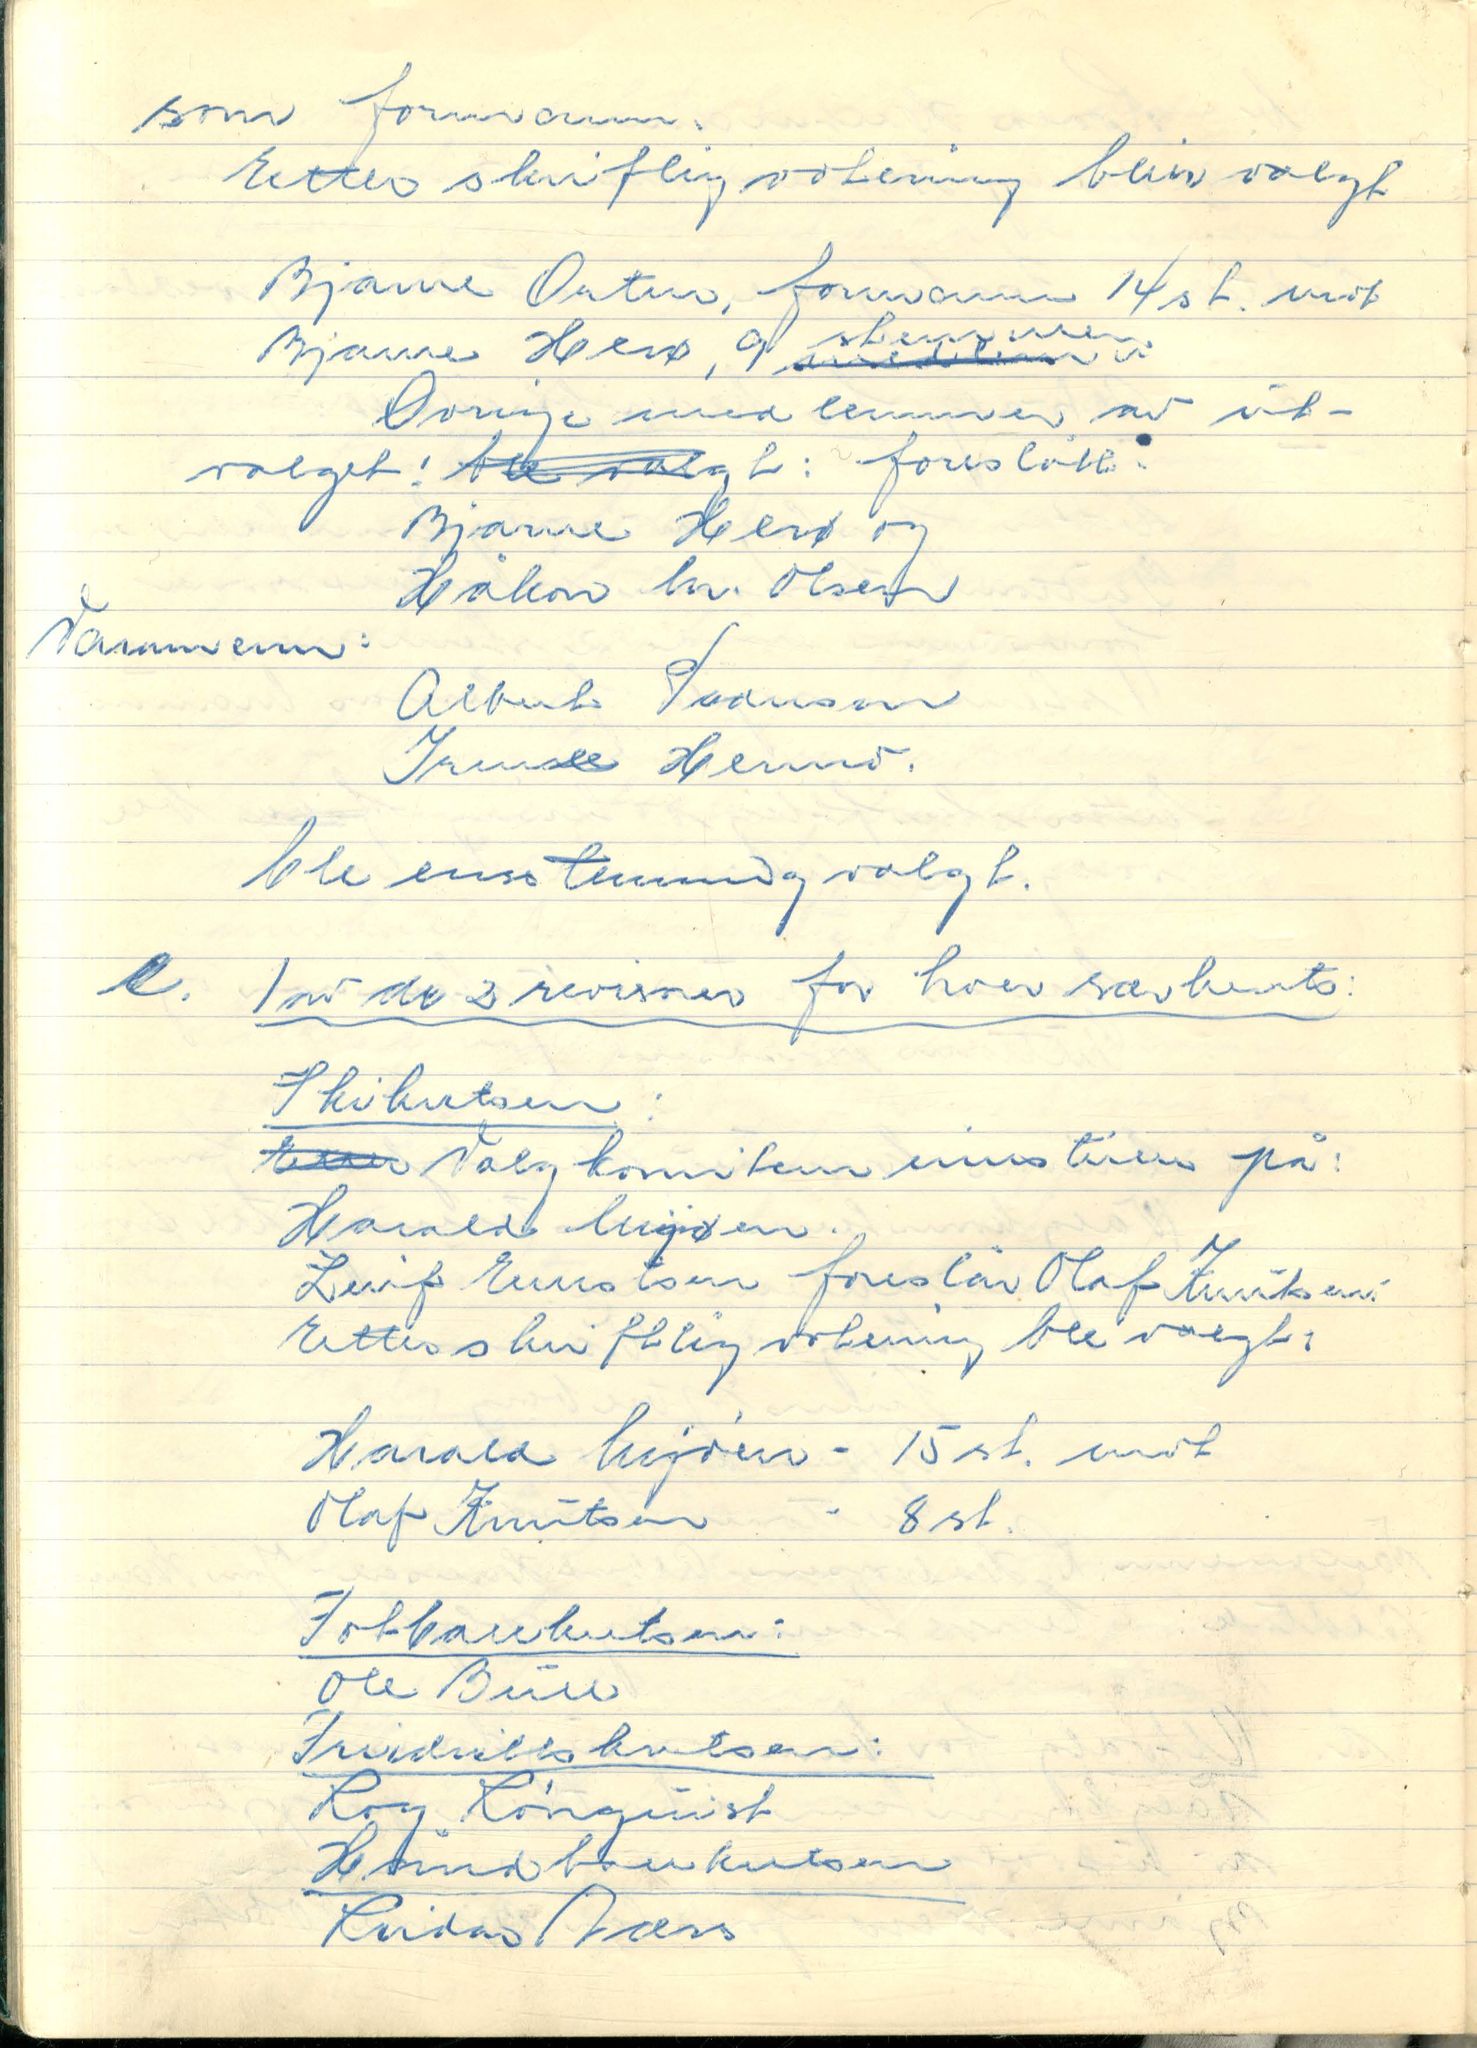 som formann.
Etter skriftlig votering blev valgt
Bjarne Østen, formann 14 st. mot
Bjarne Herø, 9 stemmer
Øvrige medlemmer av ut-
valget! ble valgt: foreslått:
Bjarne Herø og
Håkon Kr. Olsen
Varamenn:
Albert
ble enstemmig valgt.
e. 1 av de 2 revisorer for hver særkrets:
Skikretsen:
Valgkomiteen innstiller på:
Harald
Leif Ernstsen foreslår Olaf Knutsen.
Etter skriftlig votering ble valgt:
Harald - 15 st. mot
Olaf Knutsen - 8 st.
Fotballkretsen:
Ole Bull
Friidrettskretsen:
Roy Rönquist
Håndballkretsen
Reidar Næss